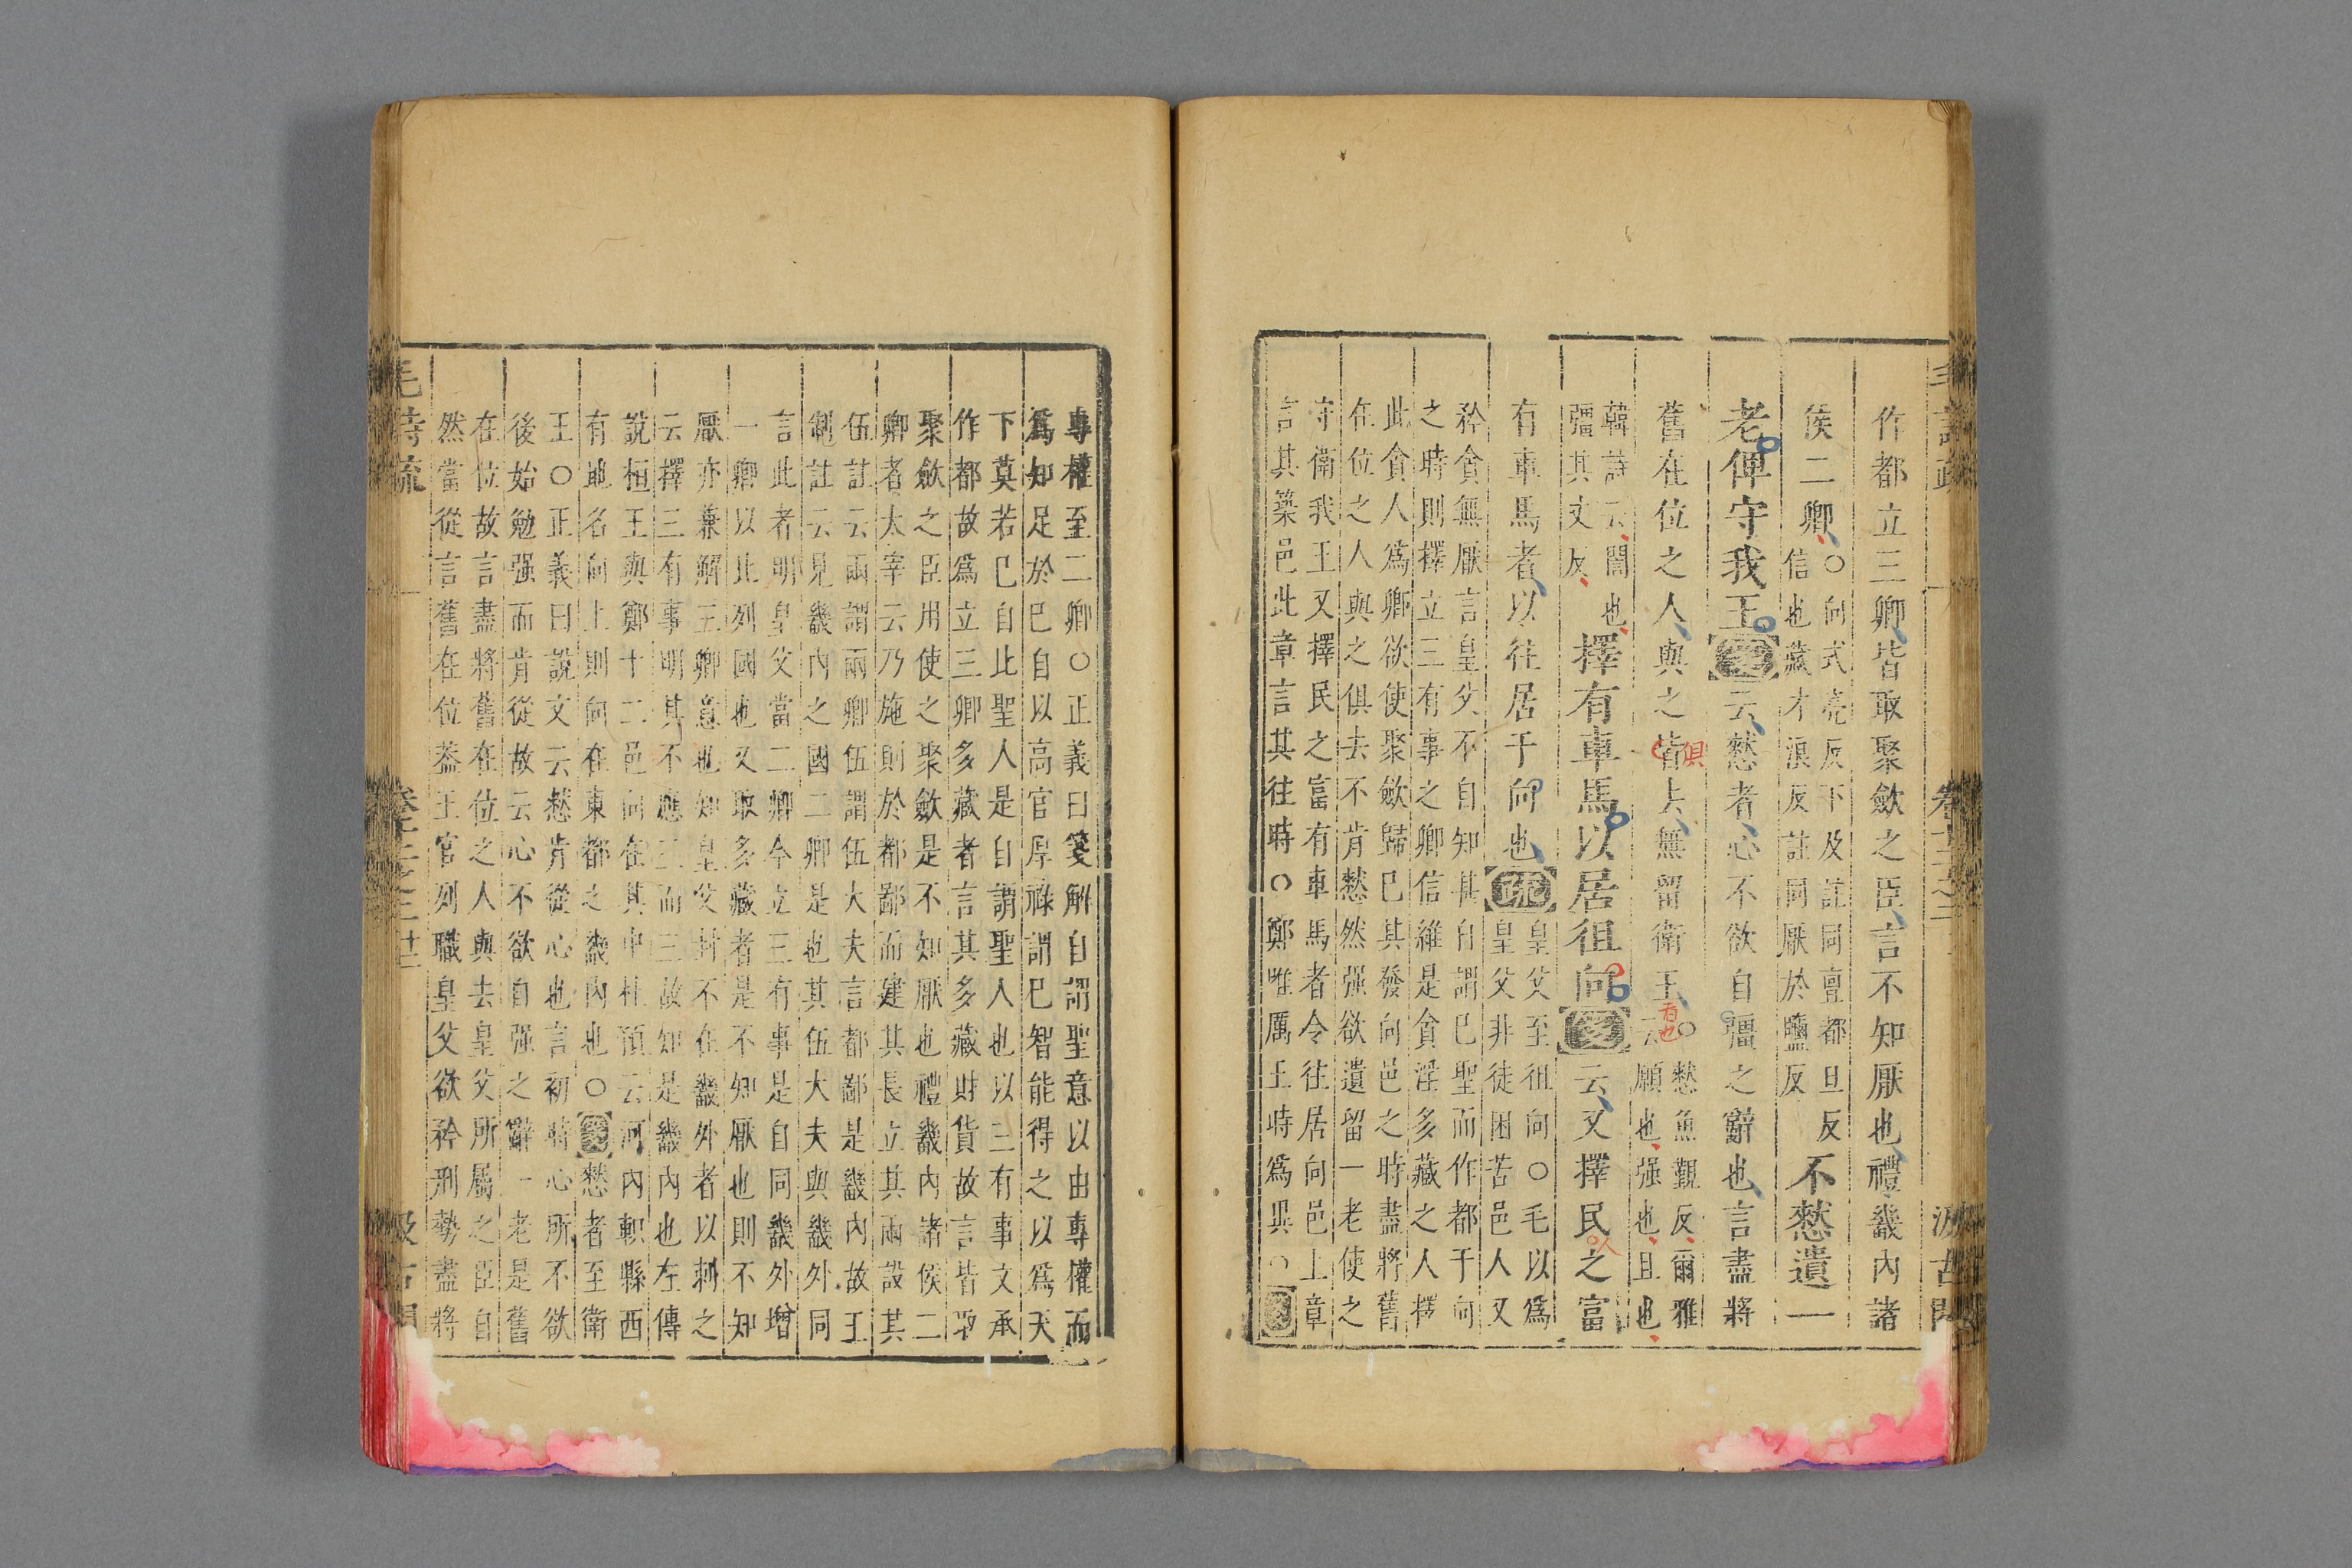 作都立三卿皆取聚斂之臣言不知厭也禮畿內諸
侯二卿○向式亮反下及註同亶都旦反
信也藏才浪反註同厭於鹽反
不憖遺一
老俾守我王
云憖者心不欲自彊之辭也言盡將
舊在位之人與之皆去無留衛王
俱
○憖魚覲反爾雅
云願也强也且也
看也
韓詩云誾也
彊其丈反
擇有車馬以居徂向
云又擇民之富
人
有車馬者以往居于向也
疏
皇父至徂向○毛以爲
皇父非徒困苦邑人又
矜貪無厭言皇父不自知其自謂巳聖而作都于向
之時則擇立三有事之卿信維是貪淫多藏之人擇
此貪人爲卿欲使聚斂歸巳其發向邑之時盡將舊
在位之人與之俱去不肯憖然强欲遺留一老使之
守衛我王又擇民之富有車馬者令往居向邑上章
言其築邑此章言其往時○鄭唯厲王時爲異○
專權至二卿○正義曰箋解自謂聖意以由專權而
爲知足於巳自以高官厚祿謂巳智能得之以爲天
下莫若巳自此聖人是自謂聖人也以三有事文承
作都故爲立三卿多藏者言其多藏財貨故言皆取
聚斂之臣用使之聚斂是不知厭也禮畿內諸侯二
卿者太宰云乃施則於都鄙而建其長立其兩設其
伍註云兩謂兩卿伍謂伍大夫言都鄙是畿內故王
制註云見畿內之國二卿是也其伍大夫與畿外同
言此者明皇父當二卿今立三有事是自同畿外增
一卿以比列國也又取多藏者是不知厭也則不知
厭亦兼解三卿意也知皇父封不在畿外者以刺之
云擇三有事明其不應三而三故知是畿內也左傳
說桓王與鄭十二邑向在其中杜預云河內軹縣西
有地名向上則向在東都之畿內也○
憖者至衛
王○正義曰說文云憖肯從心也言初時心所不欲
後始勉强而肯從故云心不欲自强之辭一老是舊
在位故言盡將舊在位之人與去皇父所屬之臣自
然當從言舊在位葢王官列職皇父欲矜刑勢盡將
毛詩疏
卷十二之二
汲古閣